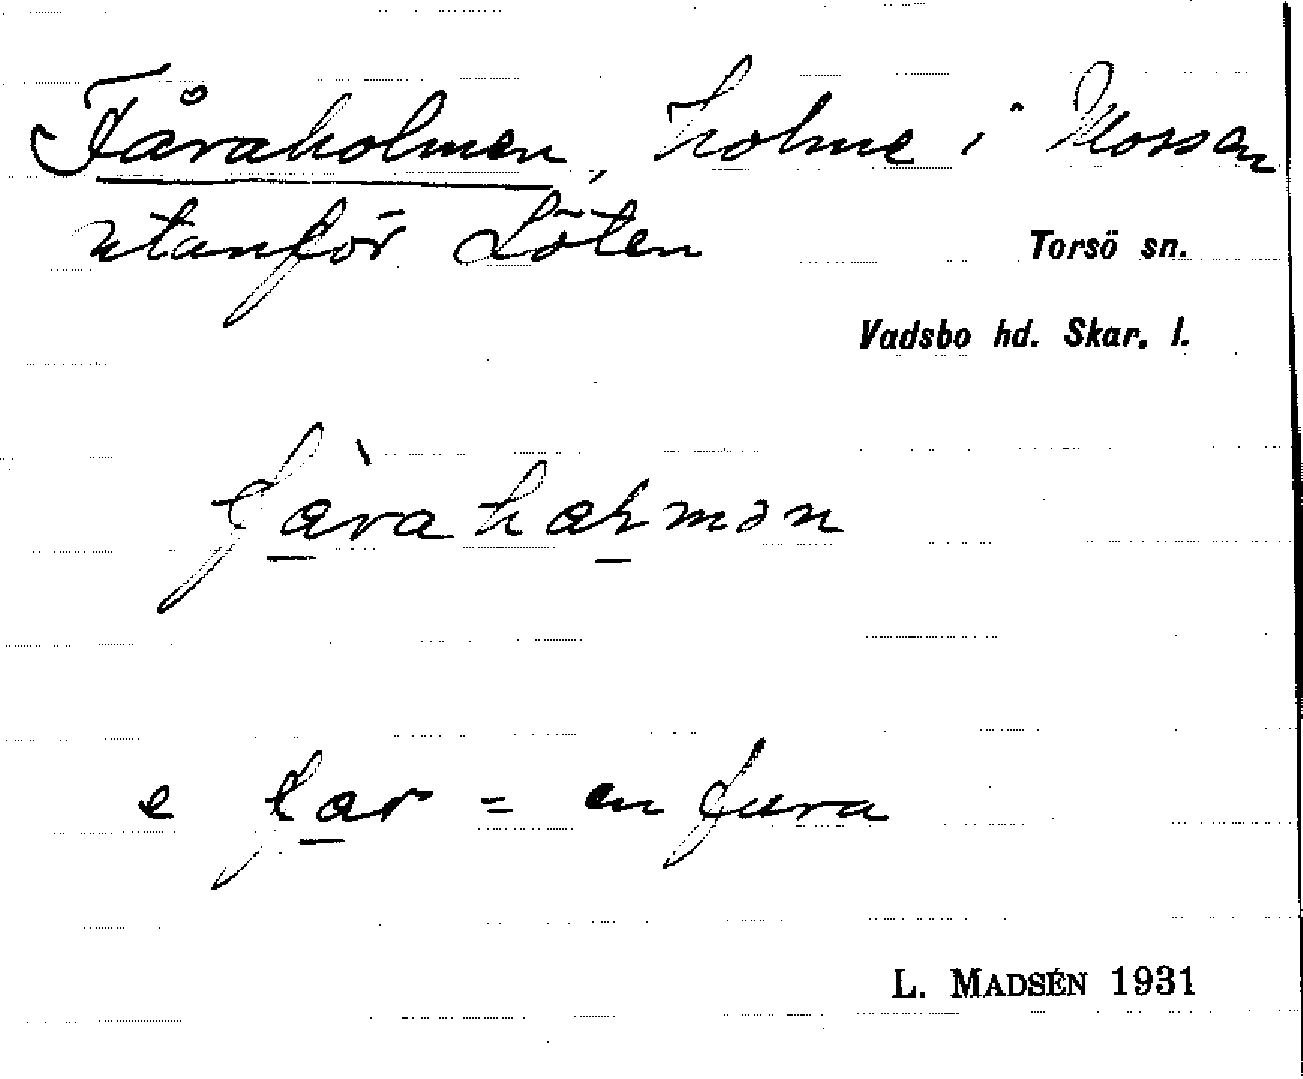 Fåraholmen, holme i Mossen
utanför Löten
Torsö sn.
Vadsbo hd. Skar. l.
e far = en fura
L. MADSÉN 1931